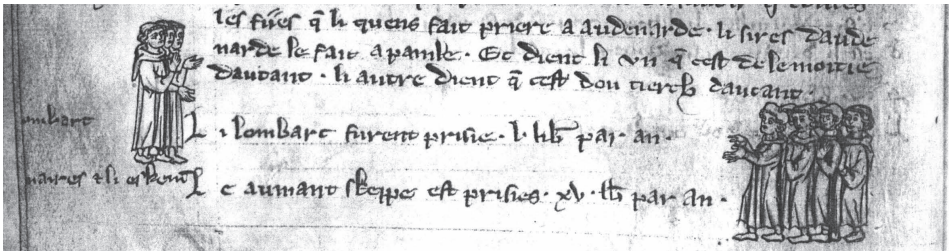 les fúes q̄ li quens fait priere a audenarde · li sires daude
narde le fait apamle · Et dient li vii q̄ cest de le moitie
dautant · li autre dient q̄ cest dou tierch dautant ·
ombart
Li lombart furent prisie · l · lib̄ par an ·
naires & li
Le aumant skeppe est prisies · xv · lb̄ par an ·